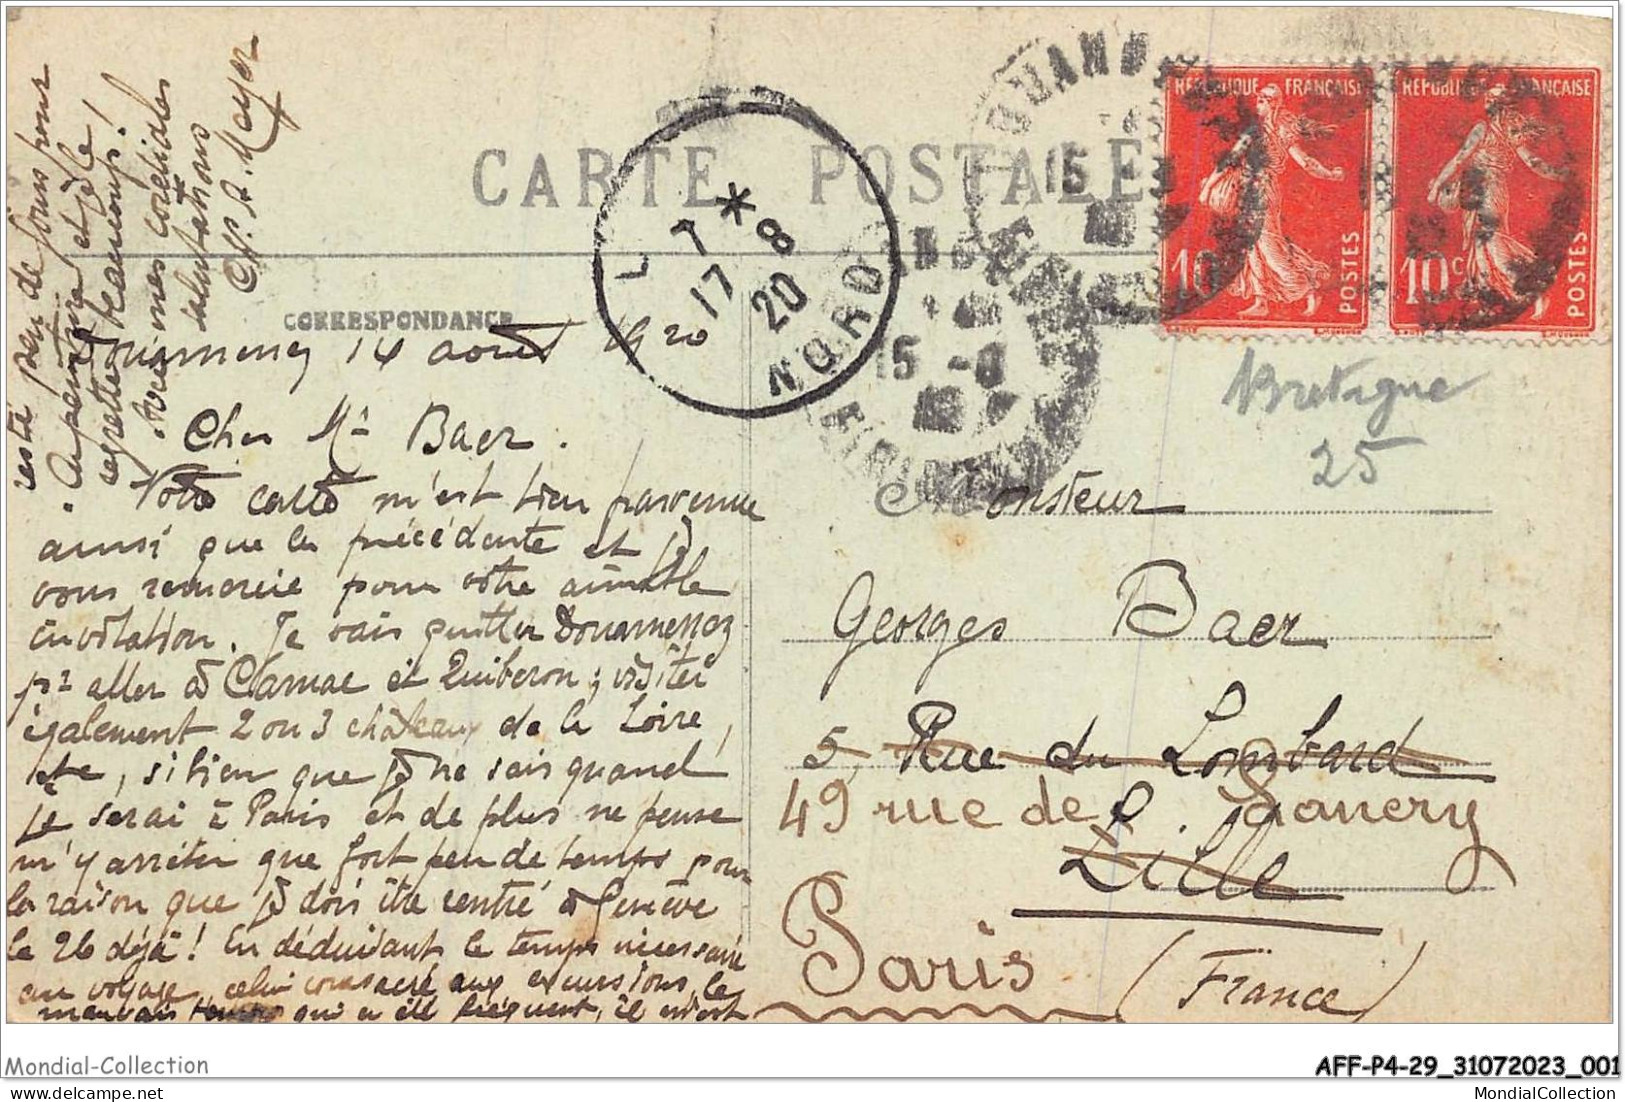 CARTE POSTALE
CORRESPONDANCE
Douarnenez 14 août 1920
Cher Mr Baer.
Votre carte m'est bien parvenue
ainsi que la précédente et je
vous remercie pour votre aimable
invitation. Je vais quitter Douarnenez
pr aller à Carnac et Quiberon; visiter
également 2 ou 3 châteaux de la Loire,
etc, si bien que je ne sais quand
je serai à Paris et de plus ne pense
m'y arrêter que fort peu de temps pour
la raison que je dois être rentré à Genève
le 26 déjà! En déduisant le temps nécessaire
au voyage, celui consacré aux excursions, le
mauvais temps qui a été fréquent, il m'est
resté peu de jours pour
la peinture et je le
regrette beaucoup!
Avec mes cordiales
salutations
Ch. A. Mayer
LILLE
7 * 17 8 20
NORD
DOUARN
15
FINISTERE
15 - 8
RÉPUBLIQUE FRANÇAISE
10
POSTES
RÉPUBLIQUE FRANÇAISE
10 c
POSTES
Bretagne
25
Monsieur
Georges Baer
5, Rue du Lombard
49 rue de
Lille
Paris
(France)
Mondial-Collection
AFF-P4-29_31072023_001
MondialCollection